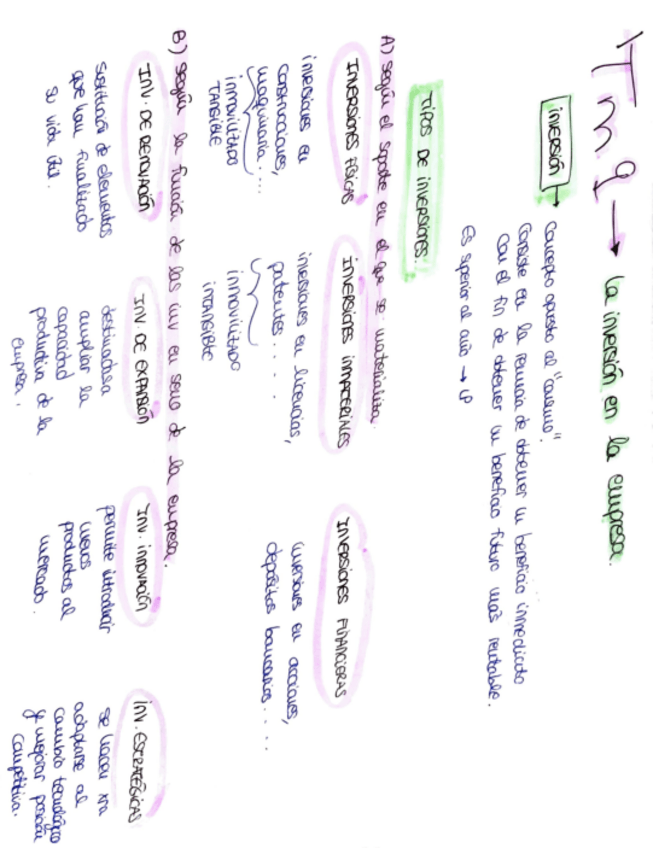 Tm 9 → La inversión en la empresa.
INVERSIÓN → Concepto opuesto al "consumo".
Consiste en la renuncia de obtener un beneficio inmediato
con el fin de obtener un beneficio futuro más rentable.
Es superior al año → LP
TIPOS DE INVERSIONES:
A) Según el soporte en el que se materializa.
INVERSIONES FÍSICAS
inversiones en
construcciones,
maquinaria ...
inmovilizado
TANGIBLE
INVERSIONES INMATERIALES
inversiones en licencias,
patentes ....
inmovilizado
INTANGIBLE
INVERSIONES FINANCIERAS
inversiones en acciones,
depósitos bancarios ....
B) Según la función de las inv en seno de la empresa.
INV. DE RENOVACIÓN
sustitución de elementos
que han finalizado
su vida útil.
INV. DE EXPANSIÓN
destinadas a
ampliar la
capacidad
productiva de la
empresa.
INV. INNOVACIÓN
permite introducir
nuevos
productos al
mercado.
INV. ESTRATÉGICAS
se hacen xra
adaptarse al
cambio tecnológico
y mejorar posición
competitiva.